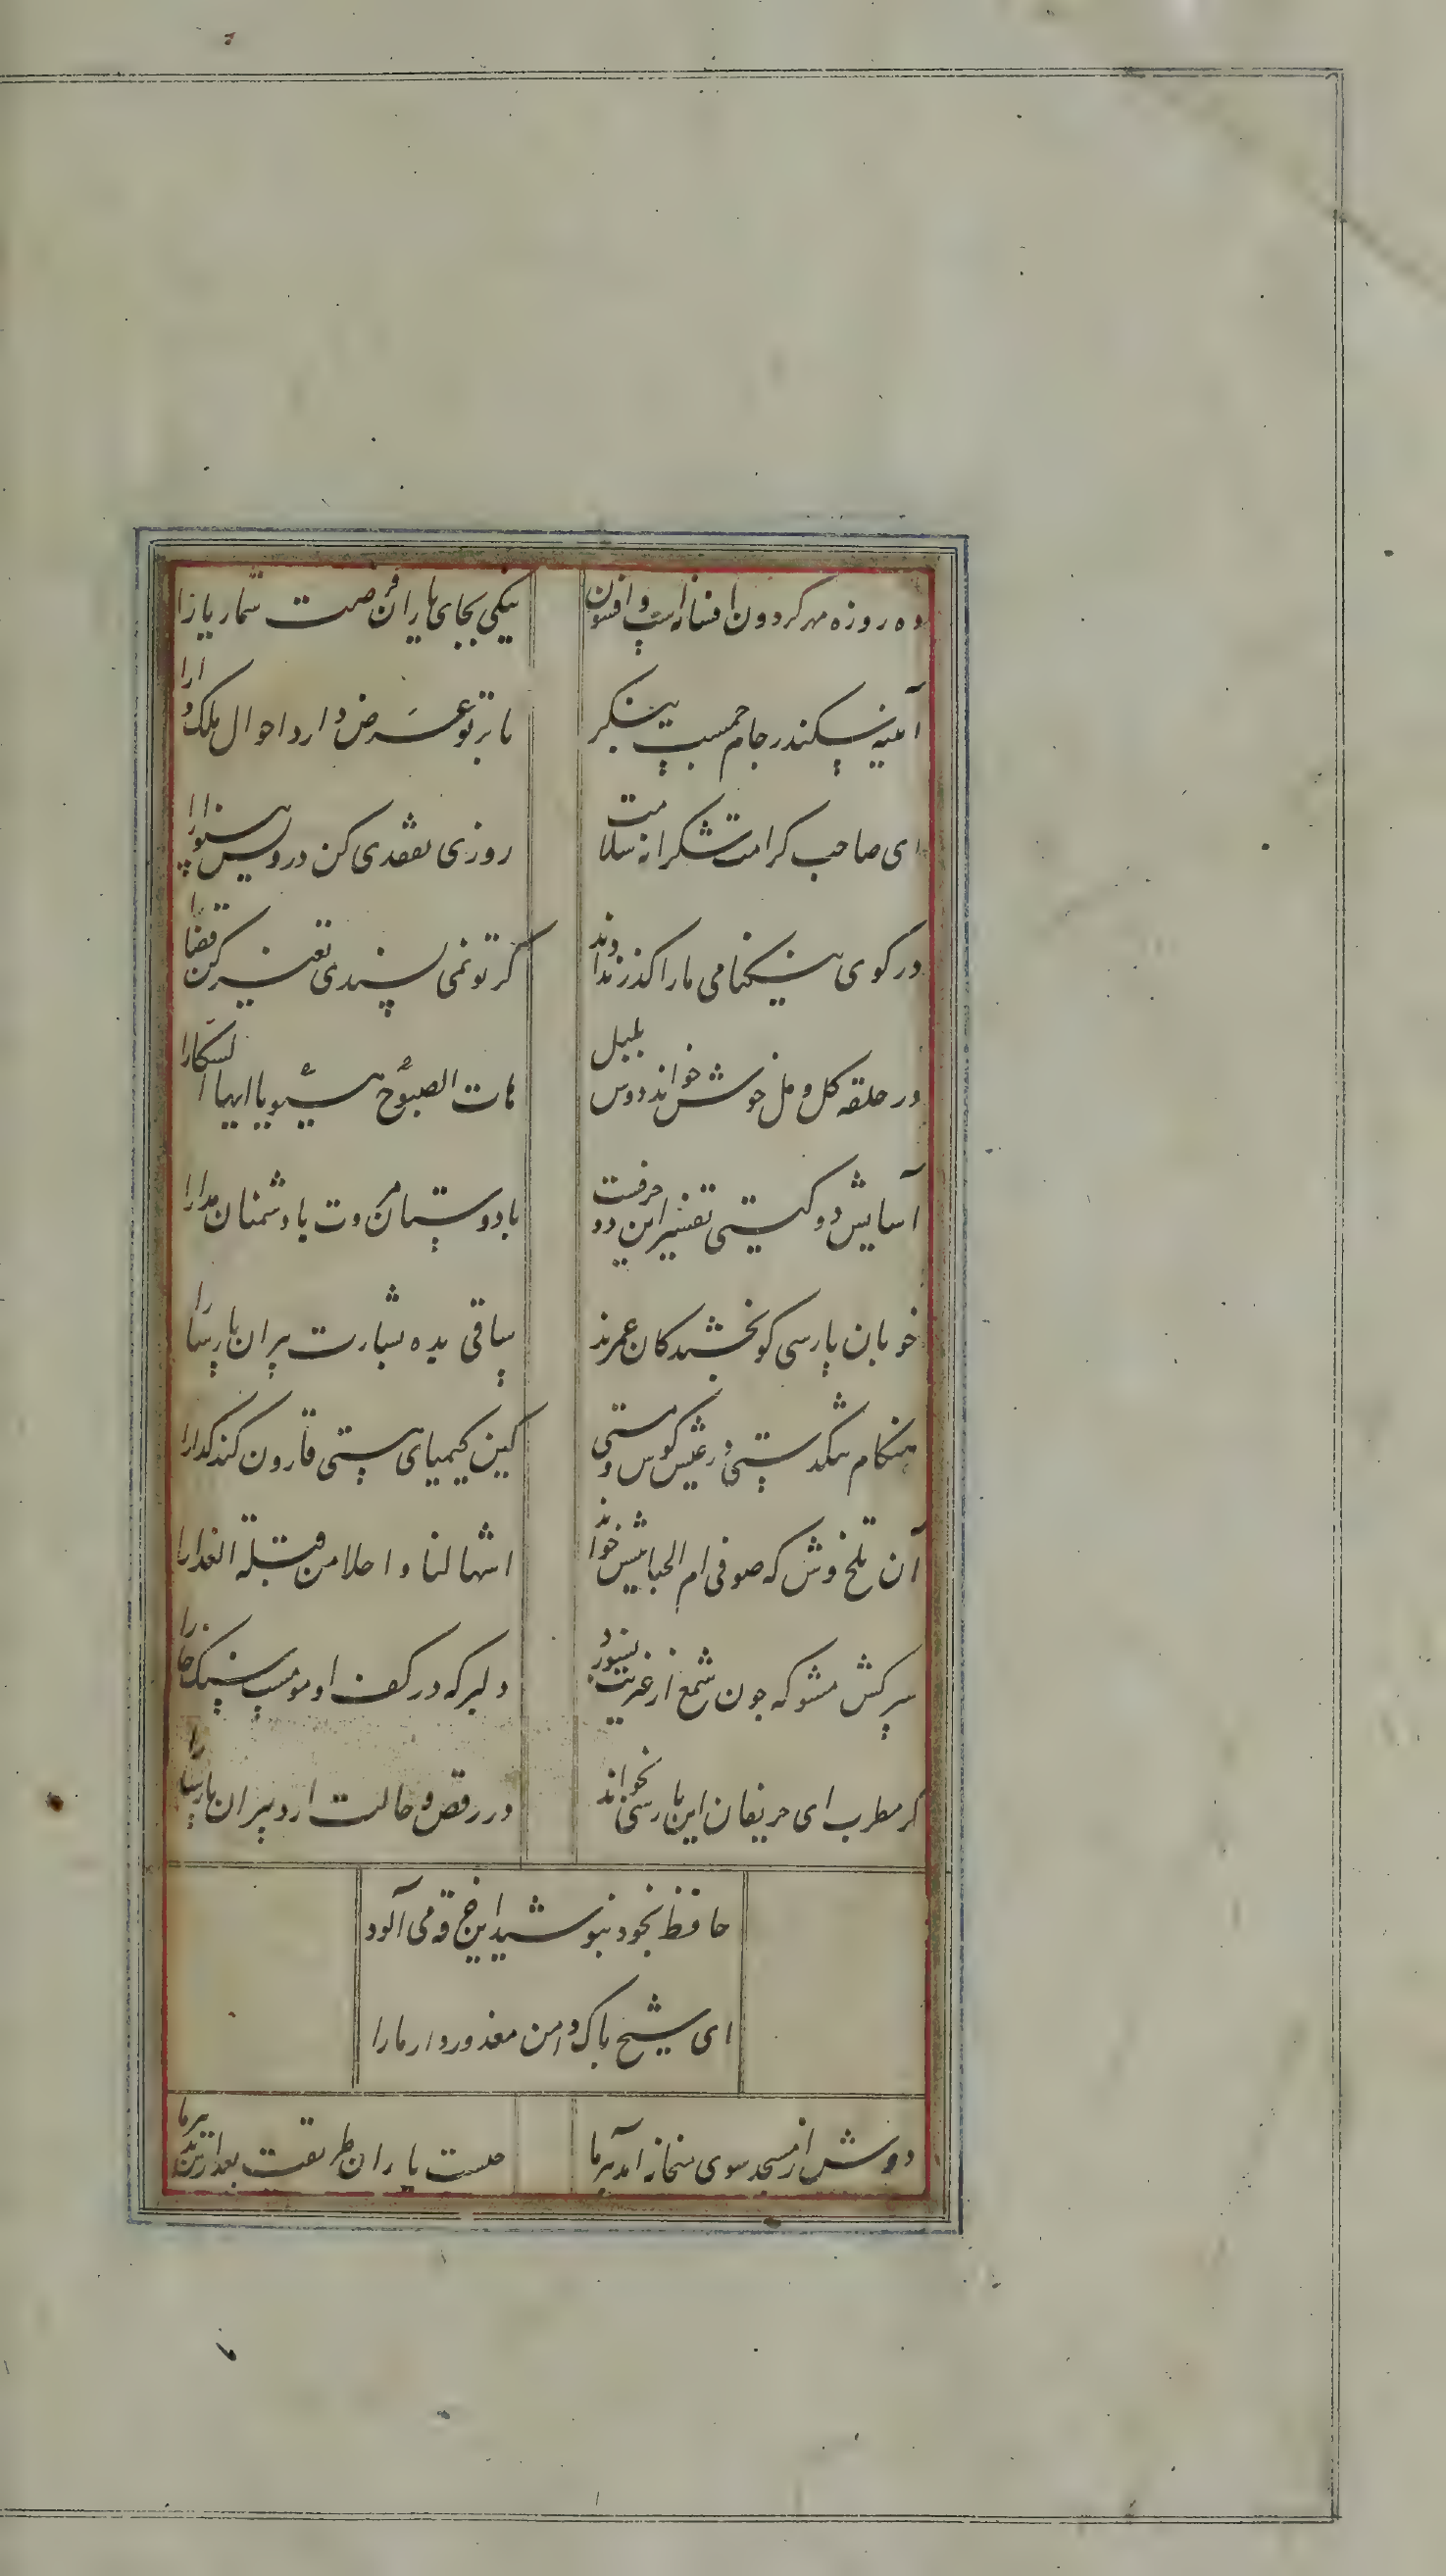 ده روزه مهر کردون افسانه است و افسون
نیکی بجای یاران فرصت شمار یارا
آیینه سکندر جام جمست بنکر
تا بر تو عرض دارد احوال ملک دارا
ای صاحب کرامت شکرانه سلامت
روزی تفقدی کن درویش بینوا را
در کوی نیکنامی ما را کذر ندادند
کر تو نمی پسندی تغییر کن قضا را
در حلقه کل و مل خوش خواند دوش بلبل
هات الصبوح هبوا یا ایها السکارا
آسایش دو کیتی تفسیر این دو حرفست
با دوستان مروت با دشمنان مدارا
خوبان پارسی کو بخشندکان عمرند
ساقی بده بشارت پیران پارسا را
هنکام تنکدستی در عیش کوش و مستی
کین کیمیای هستی قارون کند کدا را
آن تلخ وش که صوفی ام الخبایثش خواند
اشهی لنا و احلا من قبلة العذارا
سرکش مشو که چون شمع از غیرتت بسوزد
دلبر که در کف او مومست سنک خارا
کر مطرب ای حریفان این پارسی بخواند
در رقص و حالت ارد پیران پارسا را
حافظ بخود نپوشید این خرقه می آلود
ای شیخ پاک دامن معذور دار ما را
دوش از مسجد سوی میخانه آمد پیر ما
چیست یاران طریقت بعد ازین تدبیر ما